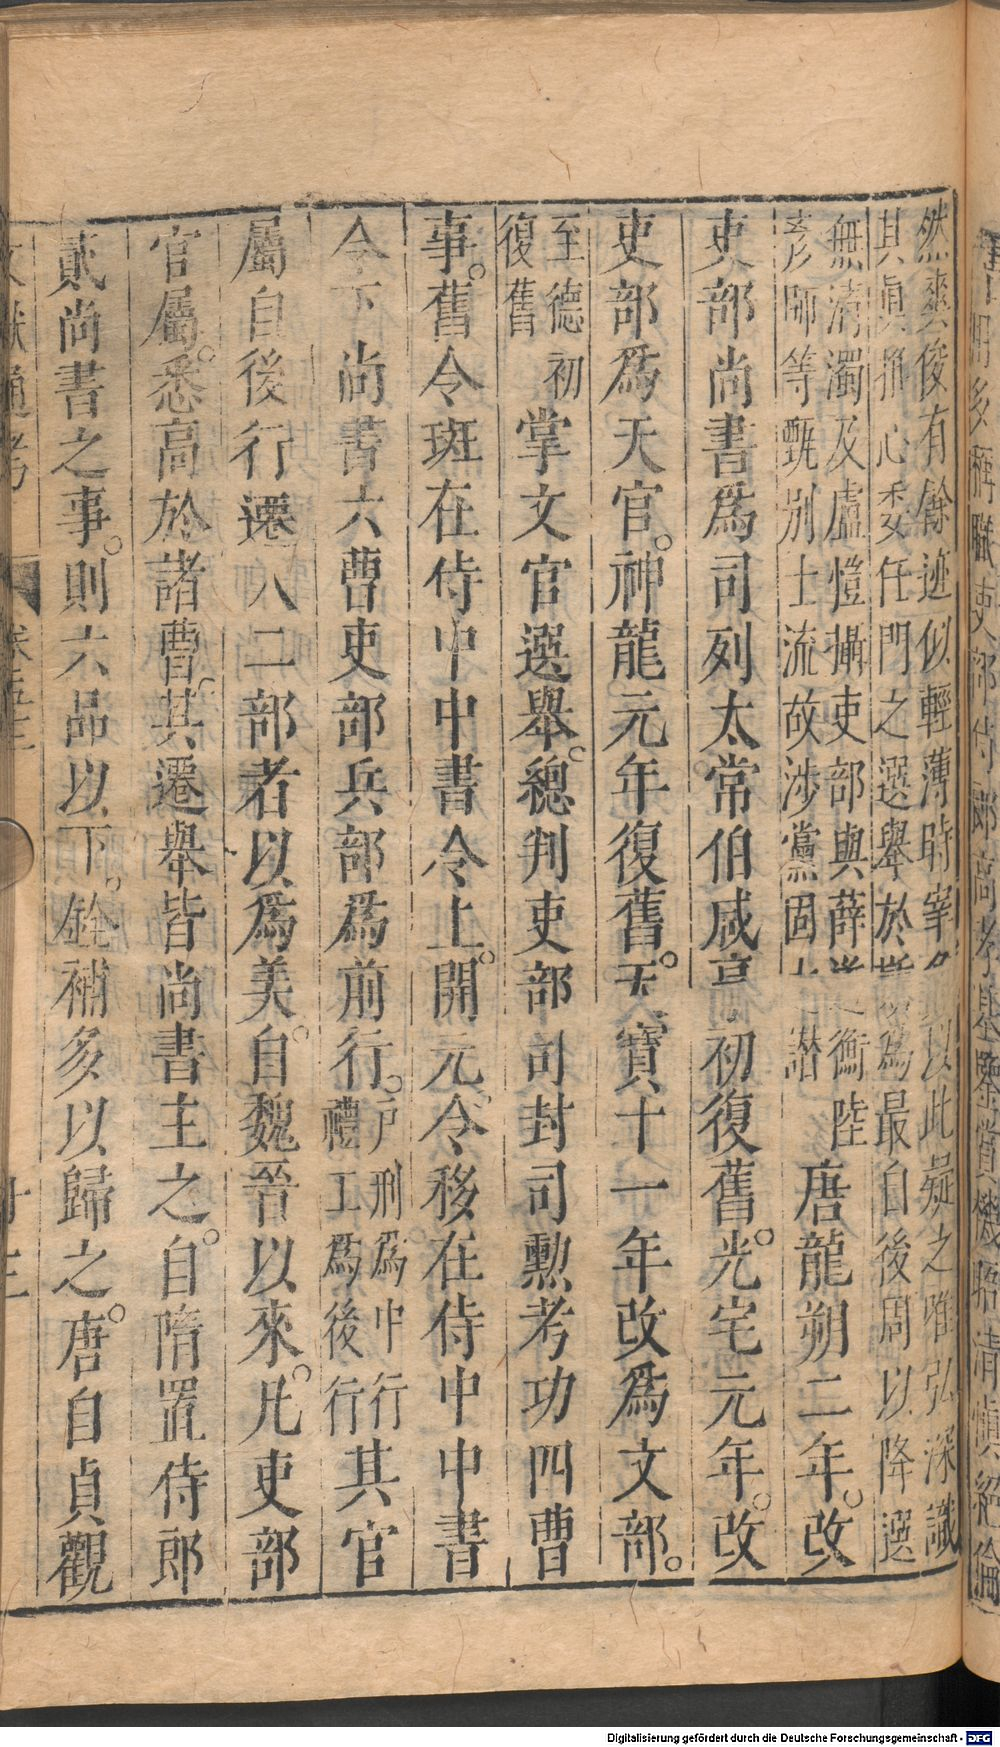 然爽俊有餘迹似輕薄時宰
以此疑之唯弘深識
其眞推心委任門之選舉於
爲最自後周以降選
無淸濁及盧愷攝吏部與薛道衡陸
彥師等甄别士流故涉黨固
譖
唐龍朔二年。改
吏部尚書爲司列太常伯咸亨初復舊。光宅元年。改
吏部爲天官。神龍元年復舊。天寶十一年改爲文部。
至德初
復舊
掌文官選舉。總判吏部司封司勲考功四曹
事。舊令班在侍中中書令上。開元令移在侍中中書
令下尚書六曹吏部兵部爲前行。
戸刑爲中行
禮工爲後行
其官
屬自後行遷入二部者以爲美。自魏晉以來。凡吏部
官屬。悉高於諸曹。其遷舉皆尚書主之。自隋置侍郎
貳尚書之事。則六品以下。銓補多以歸之。唐自貞觀
通考
卷五十二
多稱職吏部侍郎高孝基鑒賞機晤淸愼絕倫
Digitalisierung gefördert durch die Deutsche Forschungsgemeinschaft - DFG